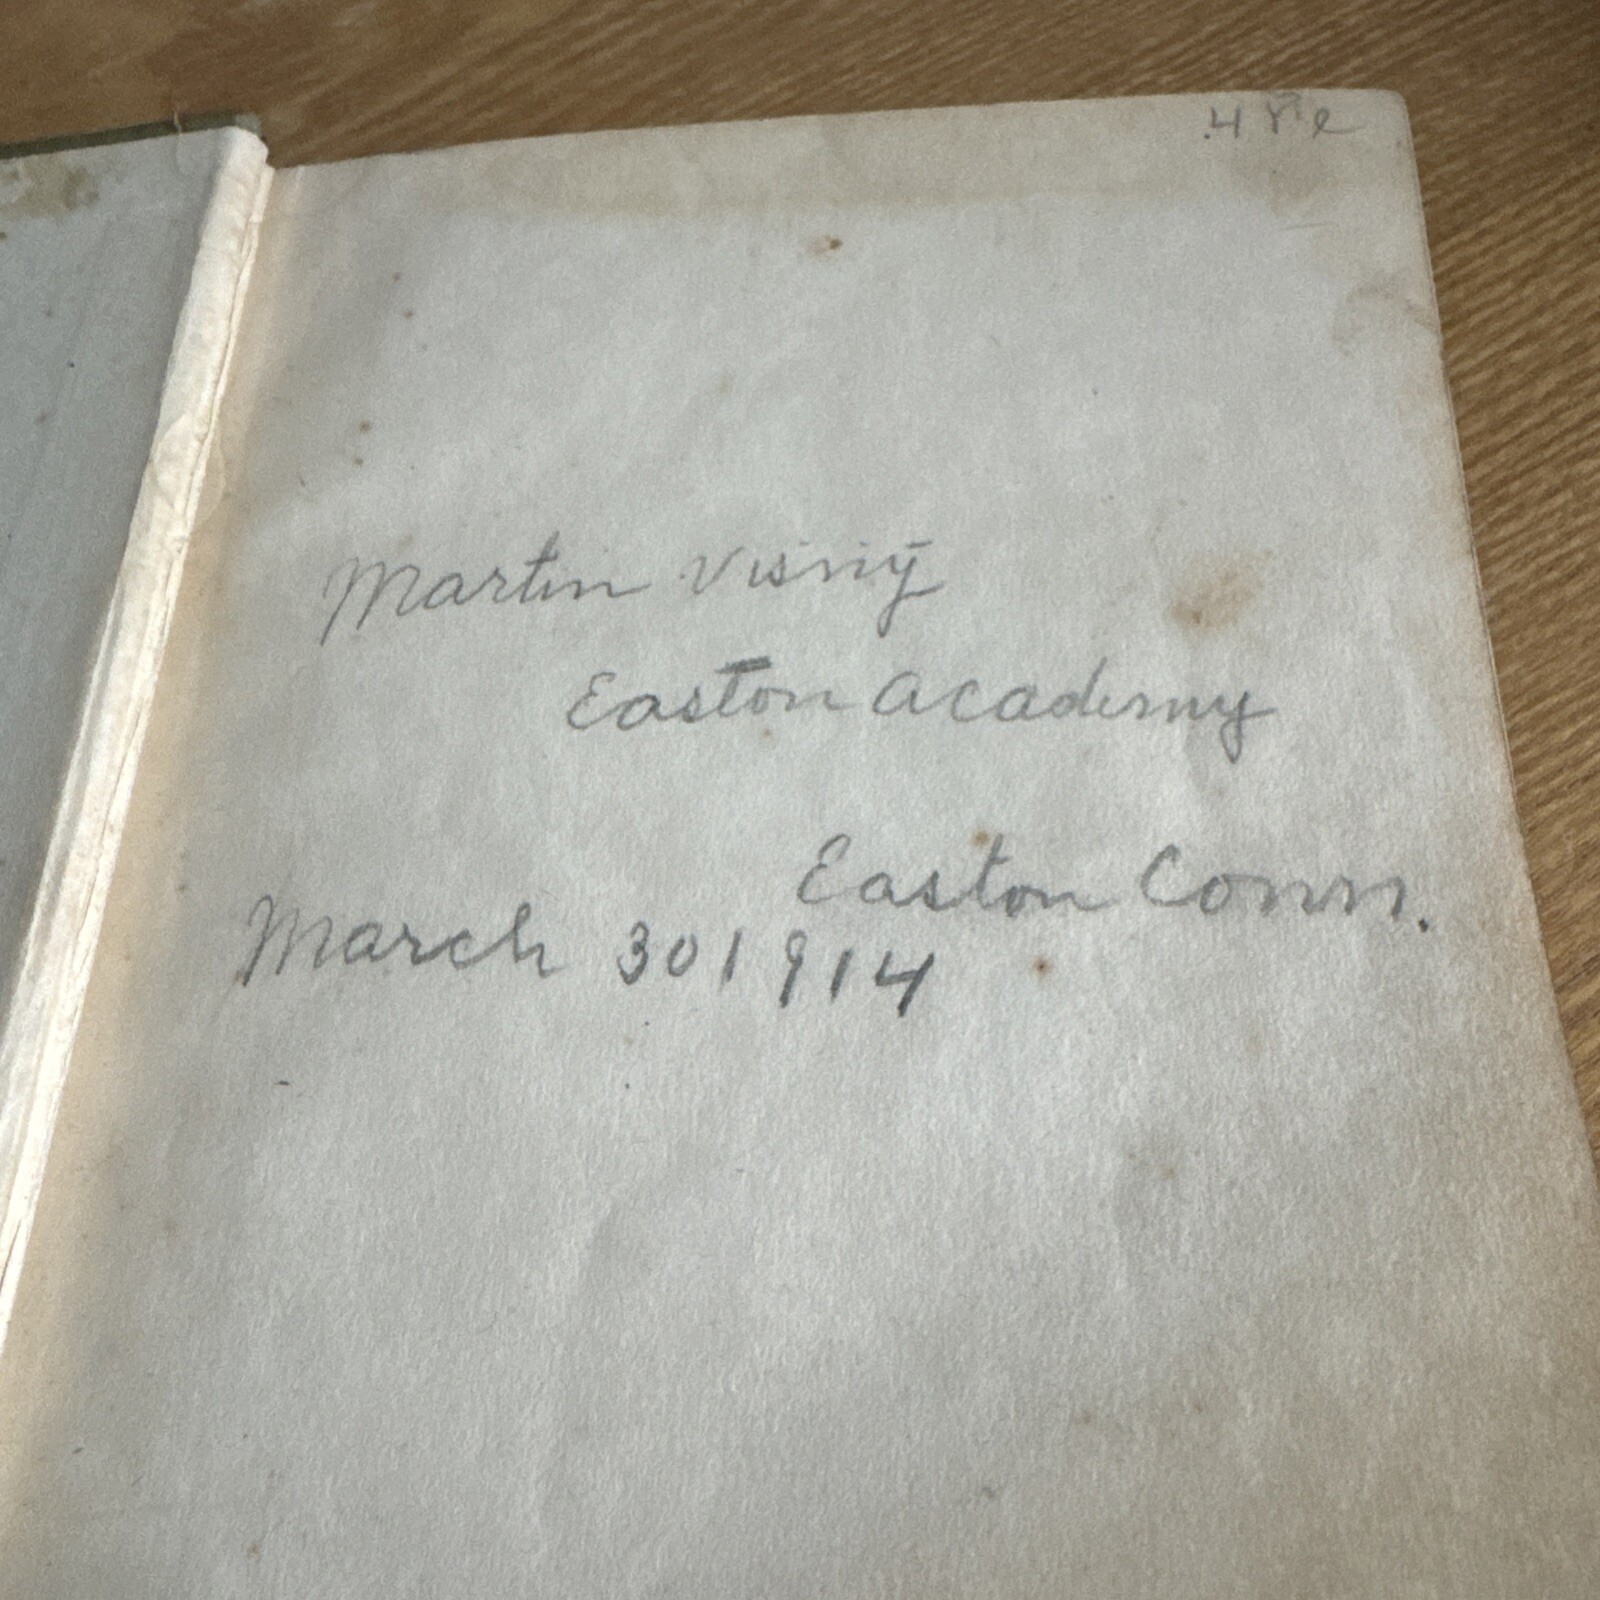 Martin Visný
Easton Academy
Easton Conn.
March 30 1914